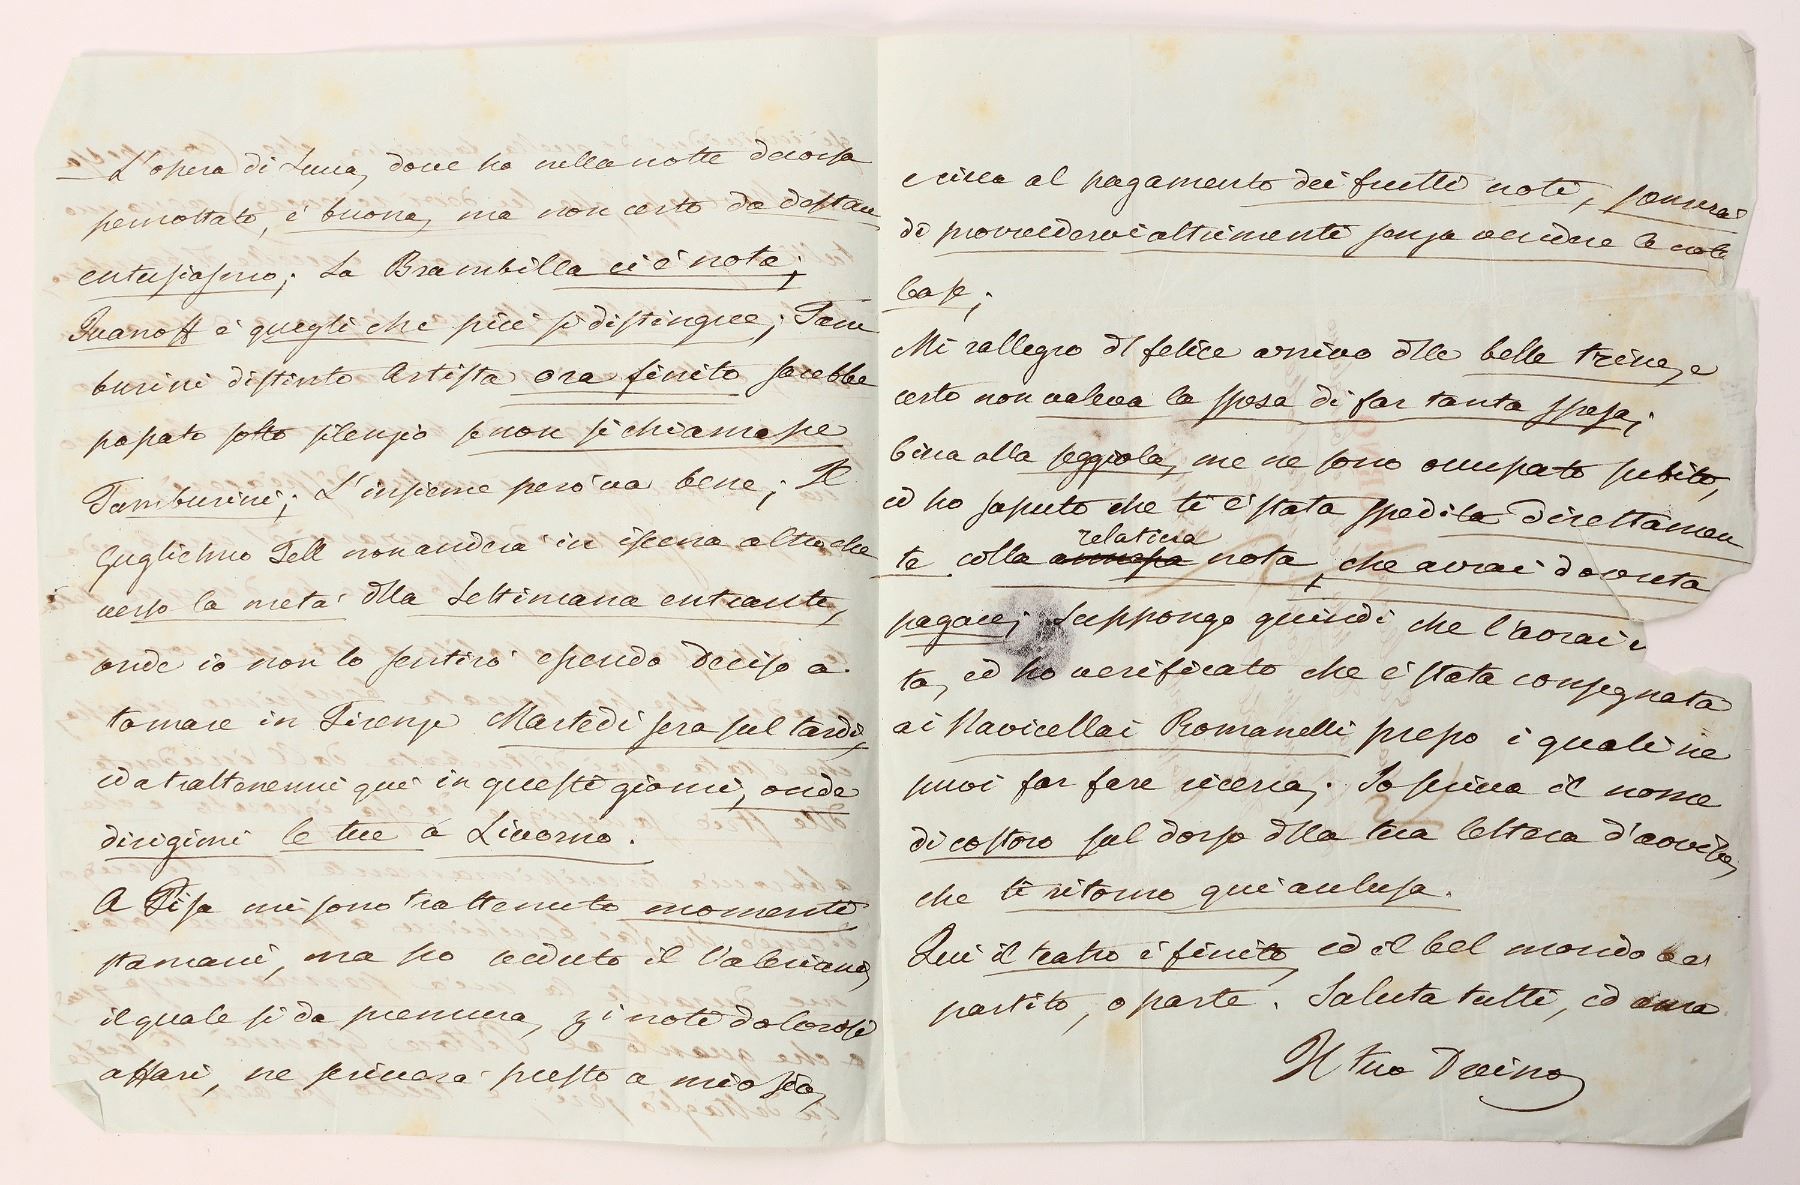 L'opera di Lucca, dove ho nella notte decorsa
pernottato, è buona, ma non certo da destare
entusiasmo; La Brambilla ci è nota;
Ivanoff è quegli che più si distingue; Tam
burini distinto Artista ora finito sarebbe
passato sotto silenzio se non si chiamasse
Tamburini; L'insieme però va bene; Il
Guglielmo Tell non anderà in iscena altro che
verso la metà dlla Settimana entrante,
onde io non lo sentirò essendo deciso a
tornare in Firenze Martedì sera sul tardi,
ed a trattenermi quì in questi giorni, onde
dirigimi le tue a Livorno.
A Pisa mi sono trattenuto momenti
stamani, ma ho veduto il Valeriani,
il quale si dà premura, pi noti dolorosi
affari, ne scriverà presto a mio Zio,
e circa al pagamento dei frutti noti, penserai
di provvedervi altrimenti senza recidere le note
Case;
Mi rallegro dl felice arrivo dlle belle trine, e
certo non valeva la spesa di far tanta spesa;
Circa alla seggiola, me ne sono occupato subito,
ed ho saputo che ti è stata spedita direttamen
te colla annessa relativa nota, che avrai dovuta
pagare; Suppongo quindi che l'avrai
ta, ed ho verificato che è stata consegnata
ai Navicellai Romanelli presso i quali ne
puoi far fare ricerca; Io scrivo il nome
di costoro sul dorso dlla tua lettera d'avviso,
che ti ritorno qui acclusa.
Qui il teatro è finito, ed il bel mondo è
partito, o parte. Saluta tutti, ed ama
Il tuo Decino